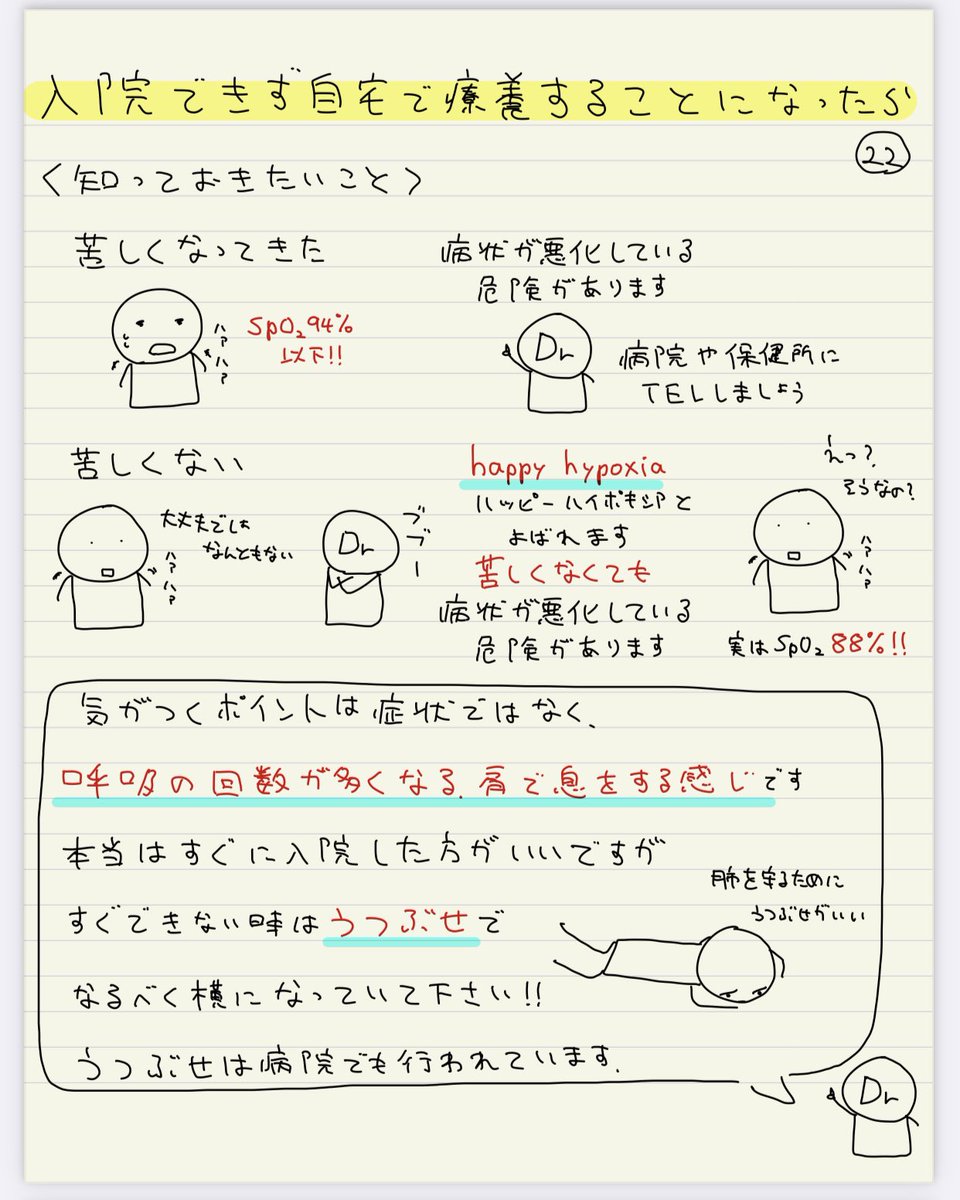 入院できず自宅で療養することになったら
22
〈知っておきたいこと〉
苦しくなってきた
ハァハァ
SpO₂94%
以下!!
病状が悪化している
危険があります
Dr
病院や保健所に
TELしましょう
苦しくない
大丈夫でしょ
なんともない
ハァハァ
Dr
ブブー
happy hypoxia
ハッピーハイポキシアと
よばれます
苦しくなくても
病状が悪化している
危険があります
えっ?
そうなの?
ハァハァ
実はSpO₂ 88%!!
気がつくポイントは症状ではなく、
呼吸の回数が多くなる、肩で息をする感じです
本当はすぐに入院した方がいいですが
すぐできない時はうつぶせで
なるべく横になっていて下さい!!
肺を守るために
うつぶせがいい
うつぶせは病院でも行われています.
Dr